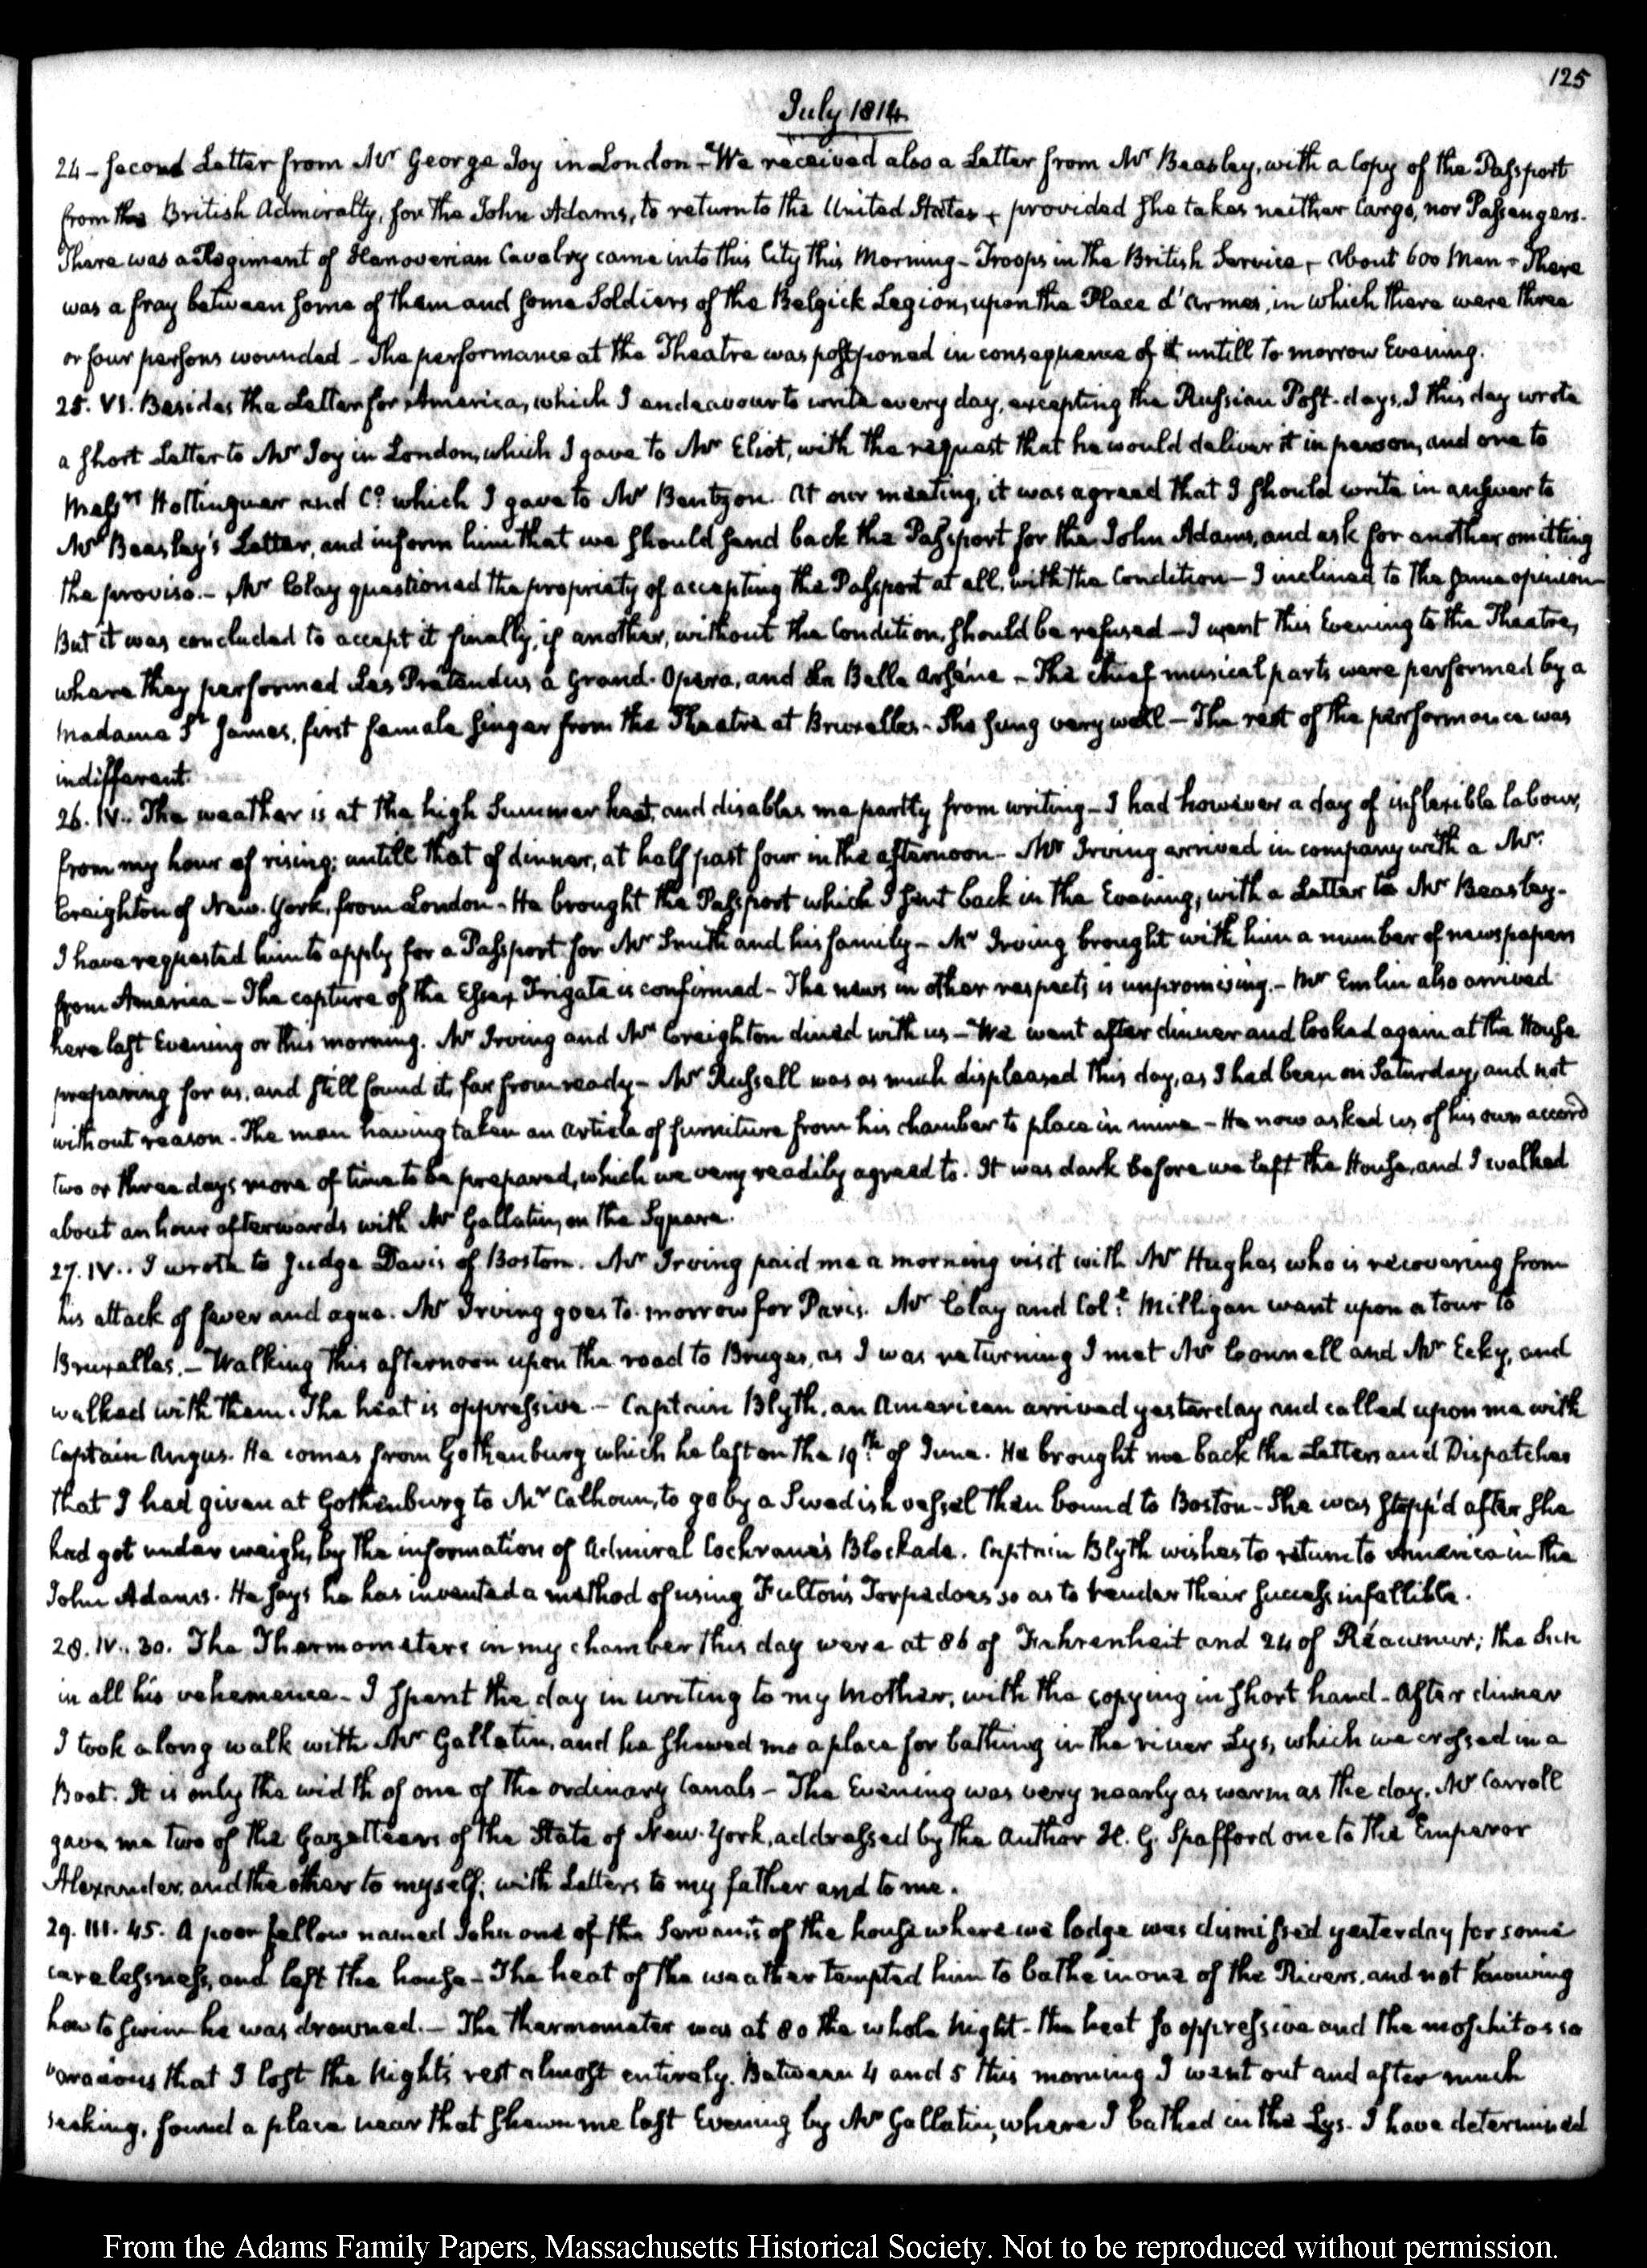 125
July 1814.
24 – second Letter from Mr George Joy in London – We received also a Letter from Mr Beasley, with a Copy of the Passport
from the British Admiralty, for the John Adams, to return to the United States, provided she takes neither Cargo, nor Passengers.
There was a Regiment of Hanoverian Cavalry came into this City this Morning – Troops in the British Service, – About 600 Men – There
was a fray between some of them and some Soldiers of the Belgick Legion, upon the Place d'Armes, in which there were three
or four persons wounded – The performance at the Theatre was postponed in consequence of it untill to morrow Evening.
25. VI. Besides the Letter for America, which I endeavour to write every day, excepting the Russian Post-days, I this day wrote
a short Letter to Mr Joy in London, which I gave to Mr Eliot, with the request that he would deliver it in person, and one to
Messrs Hottinguer and Co. which I gave to Mr Bentzon. At our meeting, it was agreed that I should write in answer to
Mr Beasley's Letter, and inform him that we should send back the Passport for the John Adams, and ask for another omitting
the proviso. – Mr Clay questioned the propriety of accepting the Passport at all, with the Condition – I inclined to the same opinion –
But it was concluded to accept it finally, if another, without the Condition, should be refused – I went this Evening to the Theatre,
where they performed Les Prétendus a Grand-Opera, and La Belle Arsène – The chief musical parts were performed by a
Madame St James, first female singer from the Theatre at Bruxelles – She sung very well – The rest of the performance was
indifferent.
26. IV.. The weather is at the high Summer heat, and disables me partly from writing – I had however a day of inflexible labour,
from my hour of rising, untill that of dinner, at half past four in the afternoon – Mr Irving arrived in company with a Mr.
Creighton of New-York, from London – He brought the Passport which I sent back in the Evening, with a Letter to Mr Beasley –
I have requested him to apply for a Passport for Mr Smith and his family – Mr Irving brought with him a number of newspapers
from America – The capture of the Essex Frigate is confirmed – The news in other respects is unpromising. – Mr Emlin also arrived
here last Evening or this morning. Mr Irving and Mr Creighton dined with us – We went after dinner and looked again at the House
preparing for us, and still found it far from ready – Mr Russell was as much displeased this day, as I had been on Saturday, and not
without reason – The man having taken an article of furniture from his chamber to place in mine – He now asked us of his own accord
two or three days more of time to be prepared, which we very readily agreed to. It was dark before we left the House, and I walked
about an hour afterwards with Mr Gallatin, on the Square.
27. IV.. I wrote to Judge Davis of Boston. Mr Irving paid me a morning visit with Mr Hughes who is recovering from
his attack of fever and ague. Mr Irving goes to-morrow for Paris. Mr Clay and Coll. Milligan went upon a tour to
Bruxelles. – Walking this afternoon upon the road to Bruges, as I was returning I met Mr Connell and Mr Ecky, and
walked with them. The heat is oppressive – Captain Blyth, an American arrived yesterday and called upon me with
Captain Angus. He comes from Gothenburg which he left on the 19th of June. He brought me back the Letters and Dispatches
that I had given at Gothenburg to Mr Calhoun, to go by a Swedish vessel then bound to Boston – She was stopp'd after she
had got under weigh, by the information of Admiral Cochrane's Blockade. Captain Blyth wishes to return to America in the
John Adams. He says he has invented a method of using Fulton's Torpedoes so as to render their success infallible.
28. IV.. 30. The Thermometers in my chamber this day were at 86 of Fahrenheit and 24 of Réaumur; the Sun
in all his vehemence – I spent the day in writing to my Mother, with the copying in short hand – After dinner
I took a long walk with Mr Gallatin, and he shewed me a place for bathing in the river Lys, which we crossed in a
Boat. It is only the width of one of the ordinary Canals – The Evening was very nearly as warm as the day. Mr Carroll
gave me two of the Gazetteers of the State of New-York, addressed by the Author H. G. Spafford one to the Emperor
Alexander, and the other to myself; with Letters to my father and to me.
29. III. 45. A poor fellow named John one of the Servants of the house where we lodge was dismissed yesterday for some
carelessness, and left the house – The heat of the weather tempted him to bathe in one of the Rivers, and not knowing
how to swim he was drowned. – The thermometer was at 80 the whole Night – the heat so oppressive and the moschitos so
voracious that I lost the Night's rest almost entirely. Between 4 and 5 this morning I went out and after much
seeking, found a place near that shewn me last Evening by Mr Gallatin, where I bathed in the Lys. I have determined
From the Adams Family Papers, Massachusetts Historical Society. Not to be reproduced without permission.